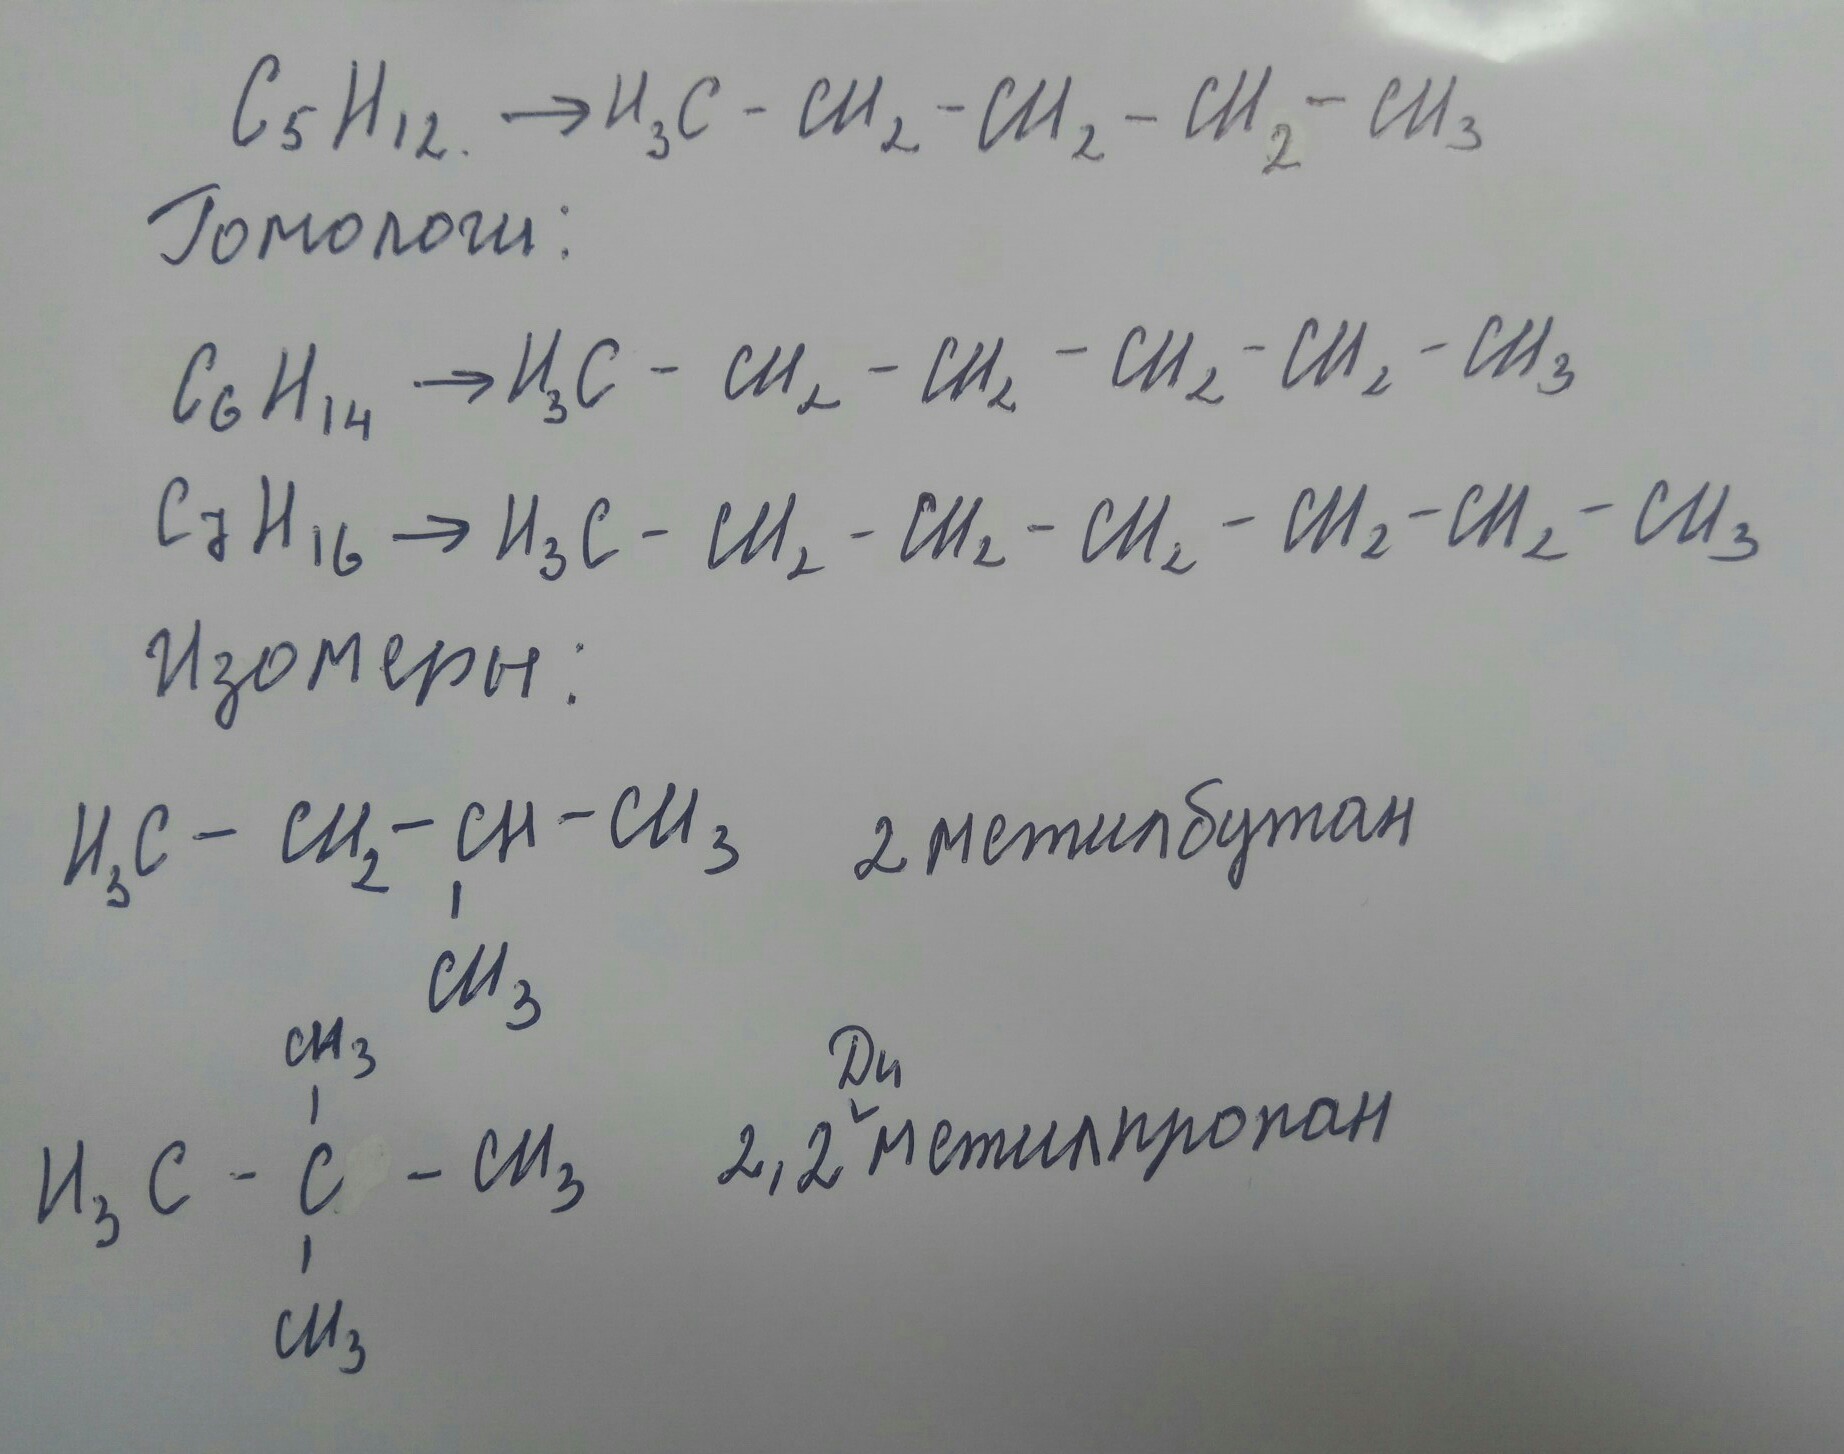 C₅H₁₂. → H₃C - CH₂ - CH₂ - CH₂ - CH₃
Гомологи:
C₆H₁₄ → H₃C - CH₂ - CH₂ - CH₂ - CH₂ - CH₃
C₇H₁₆ → H₃C - CH₂ - CH₂ - CH₂ - CH₂ - CH₂ - CH₃
Изомеры:
H₃C - CH₂ - CH - CH₃ 2 метилбутан
|
CH₃
CH₃
|
Ди
H₃C - C - CH₃ 2,2 ˅ метилпропан
|
CH₃